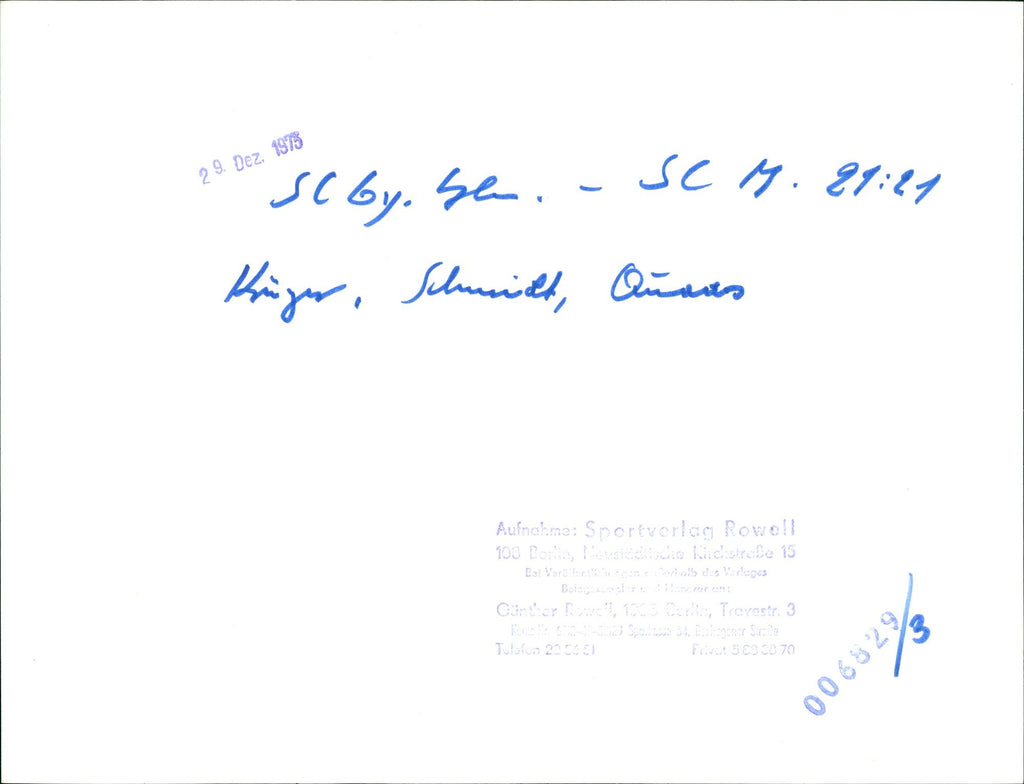 29. Dez. 1975
SC - SC M. 21:21
Krüger, Schmidt,
Aufnahme: Sportverlag Rowell
108 Berlin, Neustädtische Kirchstraße 15
Bei Veröffentlichungen außerhalb des Verlages
Belegexemplar und Honorar an:
Günther Rowell, Berlin, Travestr. 3
Telefon Privat
006829/3